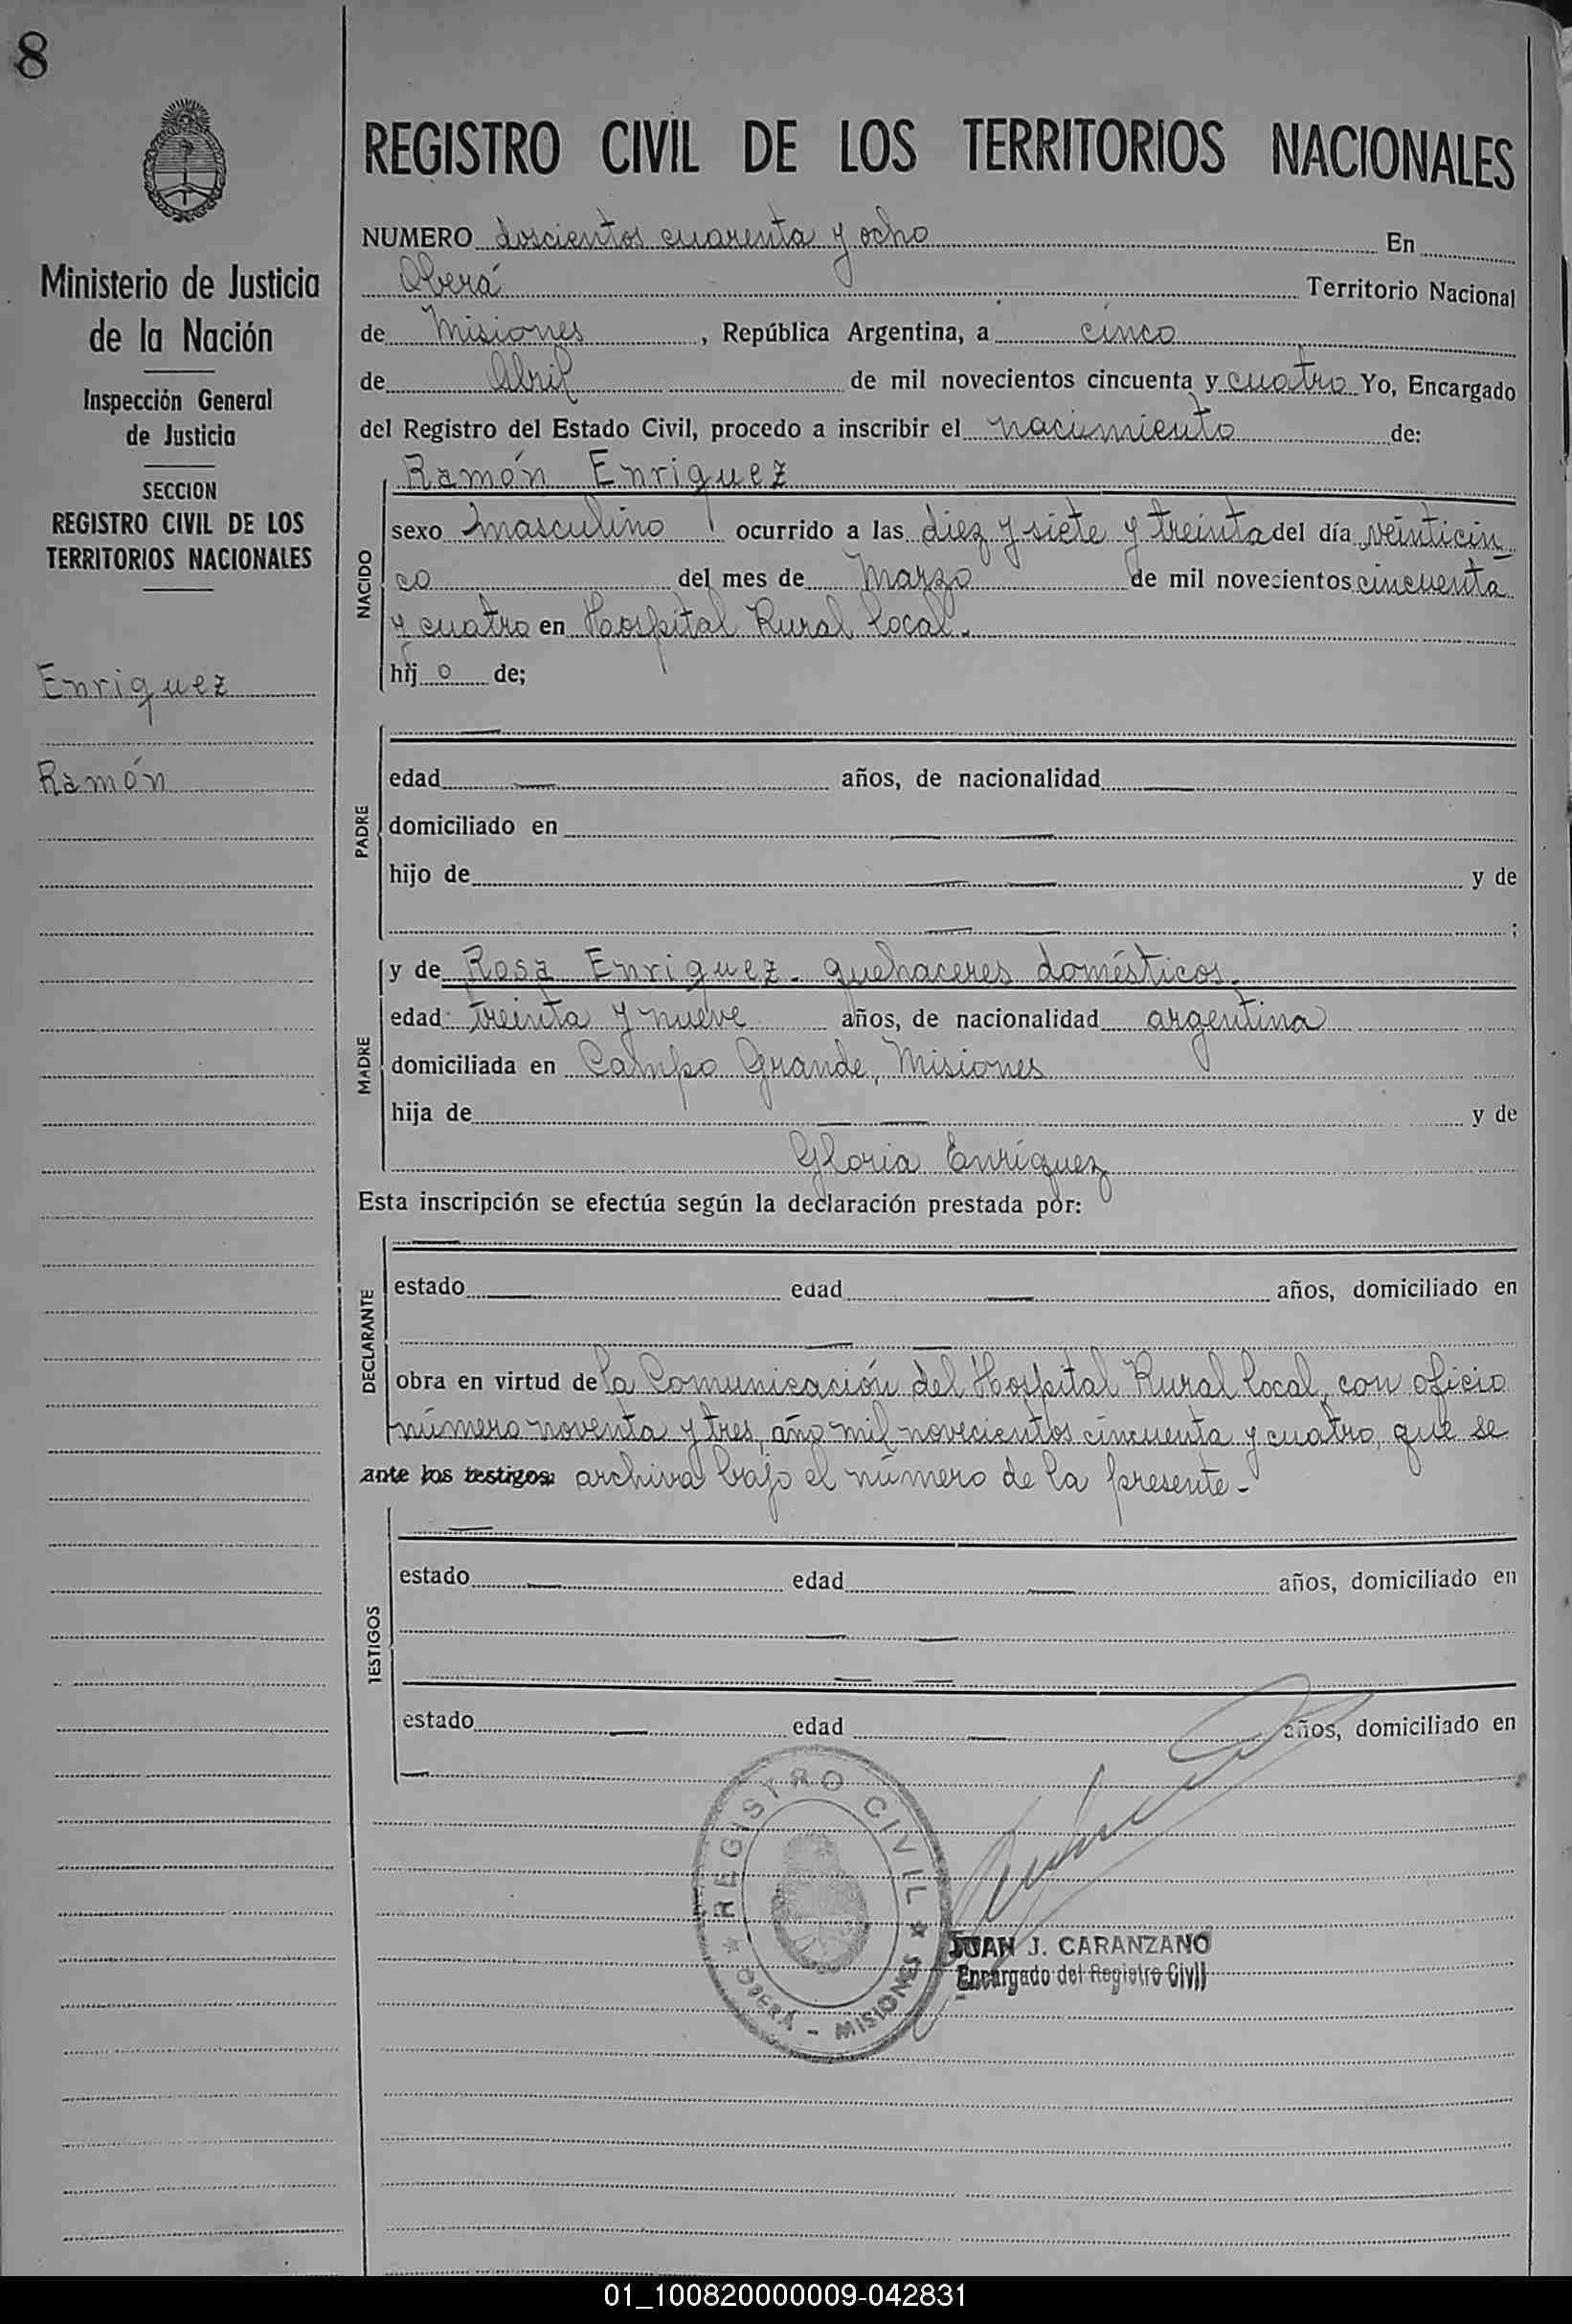 8
REGISTRO CIVIL DE LOS TERRITORIOS NACIONALES
Ministerio de Justicia
de la Nación
Inspección General
de Justicia
SECCION
REGISTRO CIVIL DE LOS
TERRITORIOS NACIONALES
Enriquez
Ramón
NUMERO doscientos cuarenta y ocho En
Oberá Territorio Nacional
de Misiones, República Argentina, a cinco
de Abril de mil novecientos cincuenta y cuatro Yo, Encargado
del Registro del Estado Civil, procedo a inscribir el nacimiento de:
NACIDO
Ramón Enriquez
sexo masculino ocurrido a las diez y siete y treinta del día veinticin
co del mes de Marzo de mil novecientos cincuenta
y cuatro en Hospital Rural local.
hij o de;
PADRE
edad años, de nacionalidad
domiciliado en
hijo de y de
;
MADRE
y de Rosa Enriquez - quehaceres domésticos.
edad treinta y nueve años, de nacionalidad argentina
domiciliada en Campo Grande, Misiones
hija de y de
Gloria Enríquez
Esta inscripción se efectúa según la declaración prestada por:
DECLARANTE
estado edad años, domiciliado en
obra en virtud de la Comunicación del Hospital Rural local, con oficio
número noventa y tres, año mil novecientos cincuenta y cuatro, que se
ante los testigos: archiva bajo el número de la presente -
TESTIGOS
estado edad años, domiciliado en
estado edad años, domiciliado en
REGISTRO CIVIL
OBERÁ - MISIONES
JUAN J. CARANZANO
Encargado del Registro Civil
01_100820000009-042831